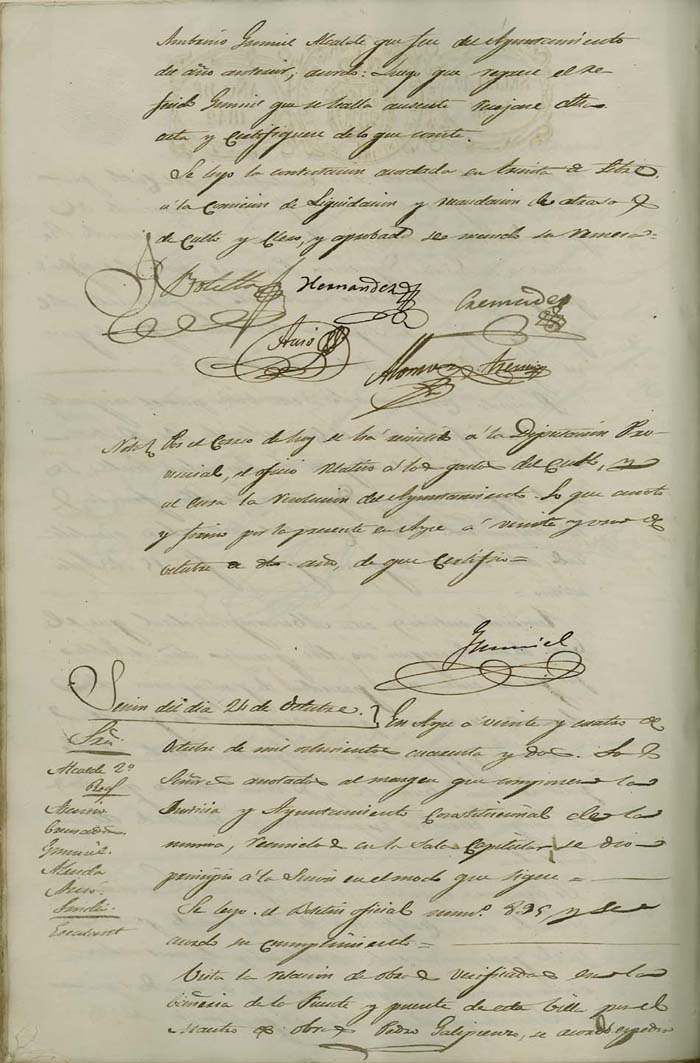 Ambrosio Gumiel Alcalde que fue del Ayuntamiento
del año anterior, acordo: Luego que regrese el re-
ferido Gumiel que se halla ausente
acta y certifiquese de lo que conste.
Se leyo la contestacion acordada en treinta de
á la Comision de Liquidacion y recaudacion de atrasos
de Culto y Clero, y aprobada se mandó su remesa=
Botella Hernandez
Auso
Alonso
Nota Por el Correo de hoy se há remitido á la Diputacion Pro-
vincial, el oficio relativo á los gastos del Culto, y
al la resolucion del Ayuntamiento. Lo que anoto
y firmo por la presente en Aspe á veinte y uno de
Octubre de dho. año, de que Certifico=
Gumiel
Sesion del dia 24 de Octubre. En Aspe á veinte y cuatro de
Octubre de mil ochocientos cuarenta y dos. Los S.
Señores anotados al margen que componen la
Justicia y Ayuntamiento Constitucional de la
misma, reunidos en la Sala Capitular se dio
principio á la Sesion en el modo que sigue=
Sres.
Alcalde 2º
Gumiel.
Auso
Se leyo el Boletin oficial num.º 835 y se
acordo su cumplimiento=
Vista la relacion de obras verificadas en la
cañeria de la Fuente y puente de esta Villa por el
Maestro de obras Pedro Galipienzo, se acordo